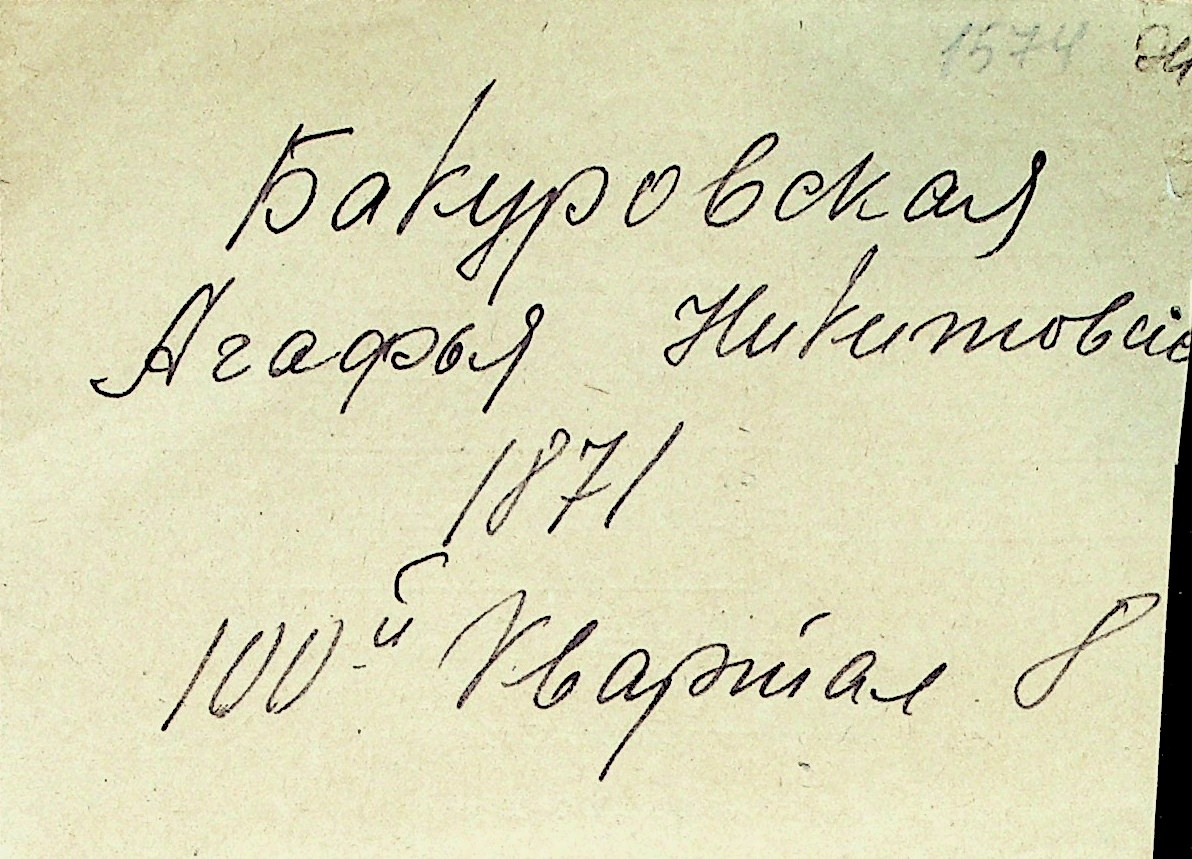 1574
Бакуровская
Агафья
1871
100-й Квартал 8